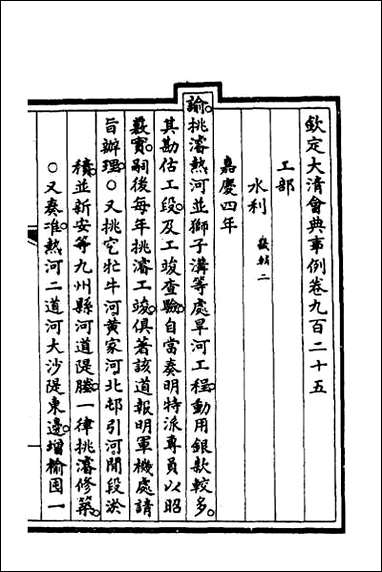 欽定大清會典事例卷九百二十五
工部
水利 畿輔二
嘉慶四年
諭挑濬熱河並獅子溝等處旱河工程動用銀款較多。
其勘估工段。及工竣查驗。自當奏明特派專員以昭
覈實。嗣後每年挑濬工竣。俱著該道報明軍機處請
旨辦理。○又挑空牤牛河黃家河北邨引河閒段淤
積。並新安等九州縣河道隄塍。一律挑濬修築。
○又奏准熱河二道河大沙隄東邊。增榆囤一